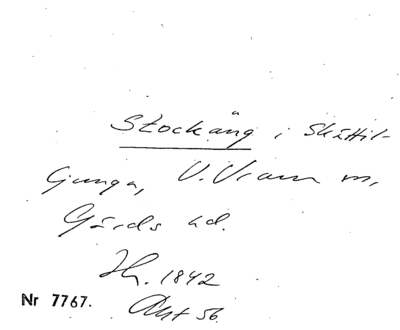 Stockäng i Skättil-
ljunga, V. Vram m,
Gärds hd.
Hy. 1842
Nr 7767.
Akt 56.